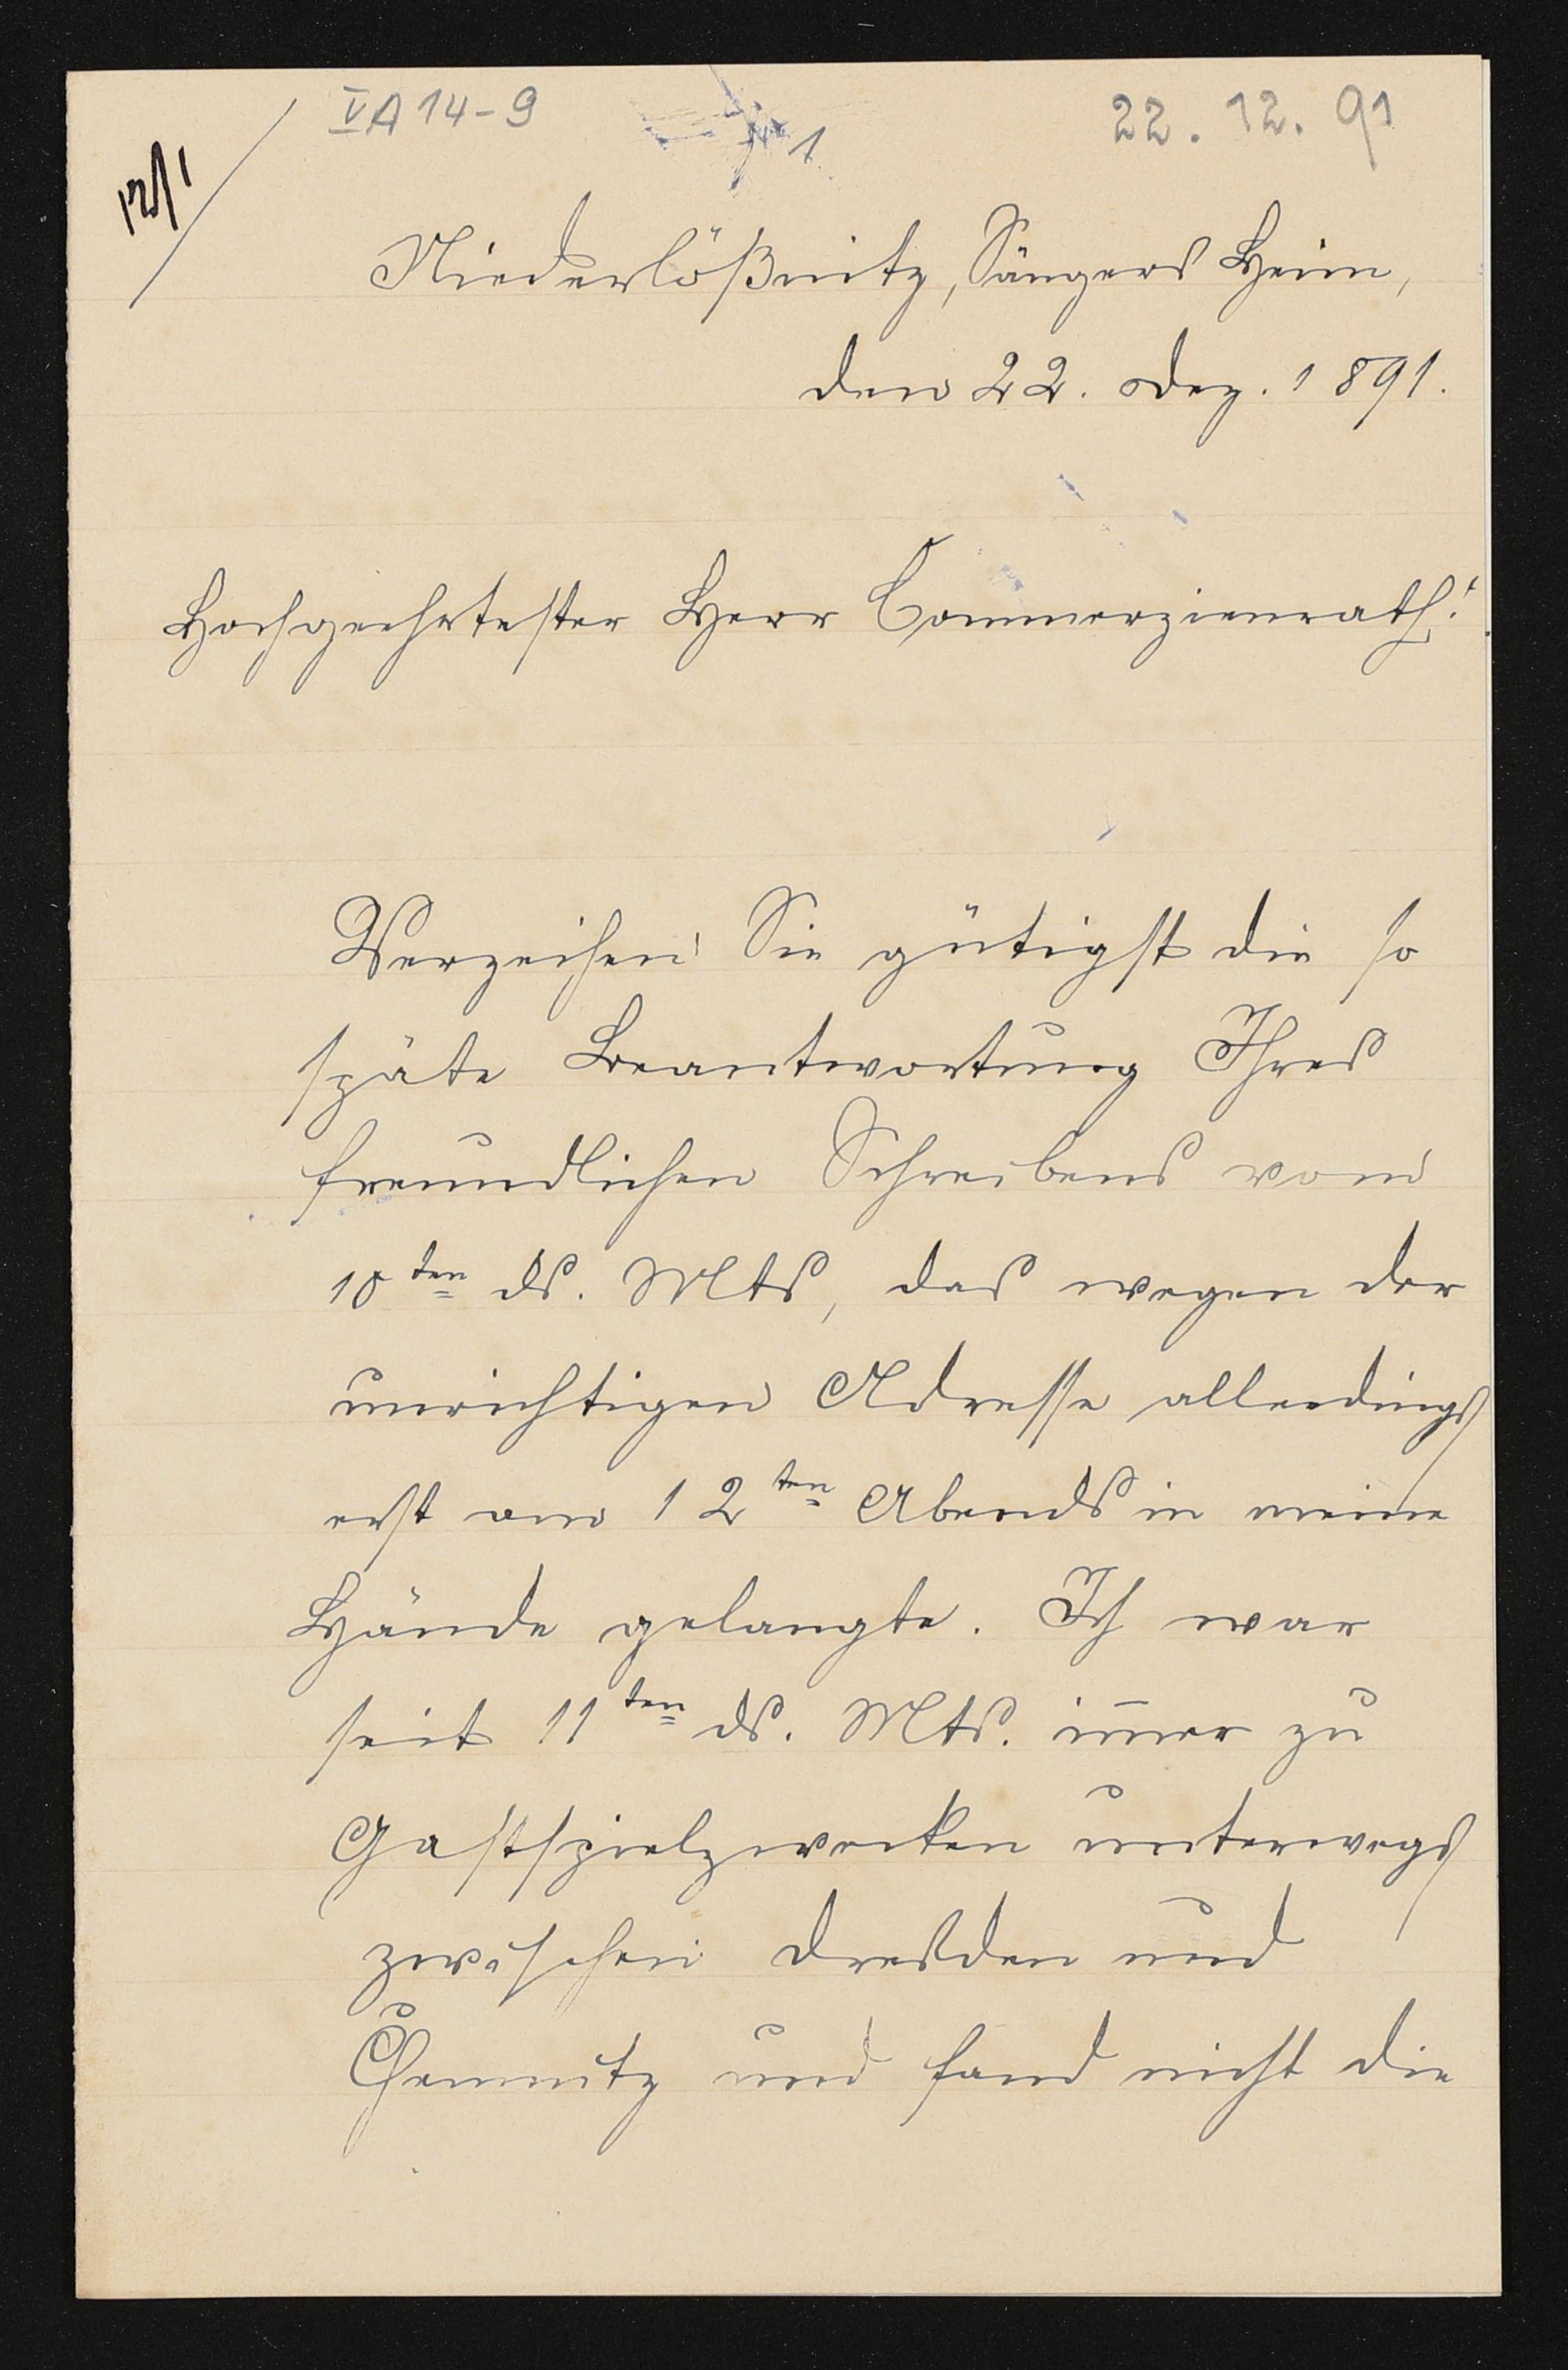 VA 14-9
22. 12. 91
1
Niederlößnitz, Sängers Heim,
den 22. Dez. 1891.
Hochgeehrtester Herr Commerzienrath!
Verzeihen Sie gütigst die so
späte Beantwortung Ihres
freundlichen Schreibens vom
10ten ds. Mts, das wegen der
unrichtigen Adresse allerdings
erst am 12ten Abends in meine
Hände gelangte. Ich war
seit 11ten ds. Mts. im̄er zu
Gastspielzwecken unterwegs
zwischen Dresden und
Chemnitz und fand nicht die